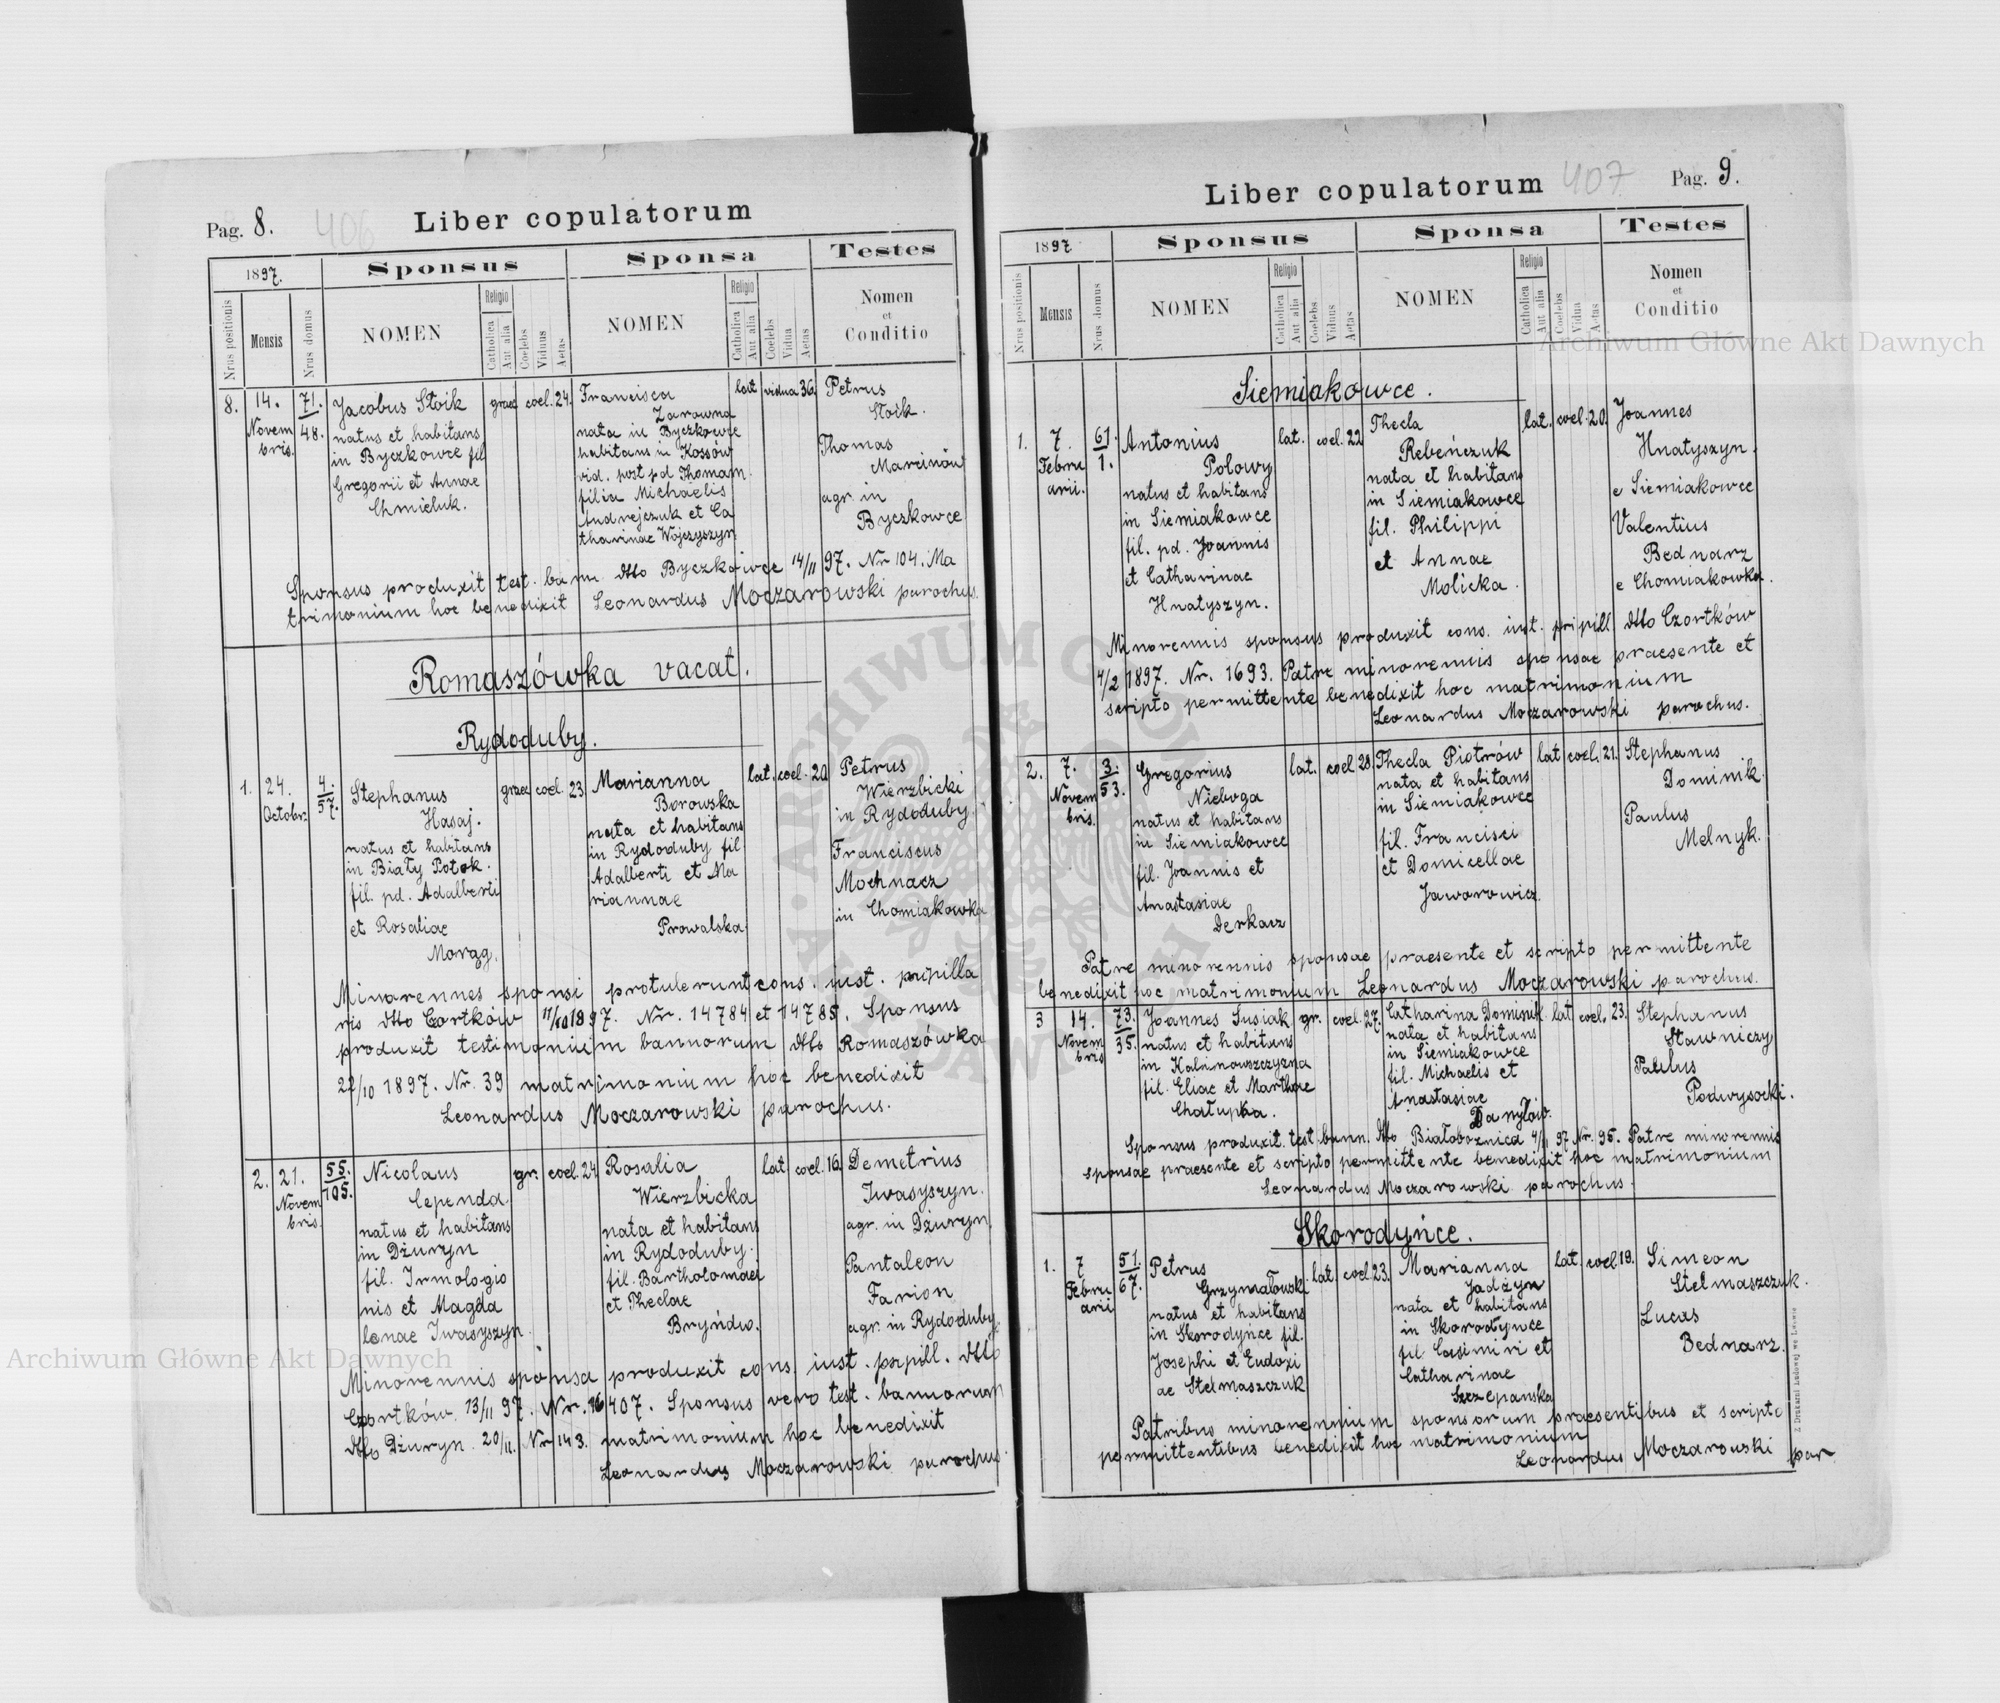 Pag. 8.
406
Liber copulatorum
1897.
Sponsus
Sponsa
Testes
Nrus positionis
Mensis
Nrus domus
NOMEN
Religio
Catholica
Aut alia
Coelebs
Viduus
Aetas
NOMEN
Religio
Catholica
Aut alia
Coelebs
Vidua
Aetas
Nomen
et
Conditio
8.
14.
Novem
bris.
71.
48.
Jacobus Stoik
natus et habitans
in Byczkowce fil
Gregorii et Annae
Chmieluk.
graec
coel.
24.
Francisca
Zarowna
nata in Byczkowce
habitans in Kossów
vid. post pd Thomam
filia Michaelis
Andrejczuk et Ca
tharinae Wojczyszyn
lat
vidua
36.
Petrus
Stoik.
Thomas
Marcinów
agr. in
Byczkowce
Sponsus produxit test. bann. dtto Byczkowce 14/11 97. Nr 104. Ma
trimonium hoc benedixit Leonardus Moczarowski parochus.
Romaszówka vacat.
Rydoduby.
1.
24.
Octobr.
4.
57.
Stephanus
Hasaj.
natus et habitans
in Biały Potok.
fil. pd. Adalberti
et Rosaliae
Morąg.
graec
coel.
23.
Marianna
Borowska
nata et habitans
in Rydoduby fil
Adalberti et Ma
riannae
Prowalska
lat.
coel.
20
Petrus
Wierzbicki
in Rydoduby
Franciscus
Mochnacz
in Chomiakowka
Minorennes sponsi protulerunt cons. inst. pupilla
ris dtto Cortków 11/10 1897. Nr. 14784 et 14785. Sponsus
produxit testimonium bannorum dtto Romaszówka
22/10 1897. Nr. 39 matrimonium hoc benedixit
Leonardus Moczarowski parochus.
2.
21.
Novem
bris.
55.
105.
Nicolaus
Cependa
natus et habitans
in Dżuryn
fil. Irmologio
nis et Magda
lenae Iwasyszyn.
gr.
coel.
24
Rosalia
Wierzbicka
nata et habitans
in Rydoduby.
fil. Bartholomaei
et Theclae
Bryńdw.
lat
coel.
16.
Demetrius
Iwasyszyn.
agr. in Dżuryn
Pantaleon
Farion
agr. in Rydoduby.
Minorennis sponsa produxit cons. inst. pupill. dtto
Czortków. 13/11 97. Nr. 16407. Sponsus vero test. bannorum
dtto Dżuryn. 20/11. Nr 143. matrimonium hoc benedixit
Leonardus Moczarowski parochus
Liber copulatorum
407
Pag. 9.
1897.
Sponsus
Sponsa
Testes
Nrus positionis
Mensis
Nrus domus
NOMEN
Religio
Catholica
Aut alia
Coelebs
Viduus
Aetas
NOMEN
Religio
Catholica
Aut alia
Coelebs
Vidua
Aetas
Nomen
et
Conditio
Siemiakowce.
1.
7.
Febru
arii.
61.
1.
Antonius
Polowy
natus et habitans
in Siemiakowce
fil. pd. Joannis
et Catharinae
Hnatyszyn.
lat.
coel.
22
Thecla
Rebeńczuk
nata et habitans
in Siemiakowce
fil. Philippi
et Annae
Molicka.
lat.
coel.
20.
Joannes
Hnatyszyn.
e Siemiakowce
Valentius
Bednarz
e Chomiakowka.
Minorennis sponsus produxit cons. inst. pupill. dtto Czortków
4/2 1897. Nr. 1693. Patre minorennis sponsae praesente et
scripto permittente benedixit hoc matrimonium
Leonardus Moczarowski parochus.
2.
7.
Novem
bris.
3.
53.
Gregorius
Nieboga
natus et habitans
in Siemiakowce
fil. Joannis et
Anastasiae
Derkacz
lat.
coel
28.
Thecla Piotrów
nata et habitans
in Siemiakowce
fil. Francisci
et Domicellae
Jaworowicz.
lat
coel.
21.
Stephanus
Dominik.
Paulus
Melnyk.
Patre minorennis sponsae praesente et scripto permittente
benedixit hoc matrimonium Leonardus Moczarowski parochus.
3
14.
Novem
bris
73.
35.
Joannes Susiak
natus et habitans
in Kalinowszczyzna
fil. Eliae et Marthae
Chałupka.
gr.
coel.
27.
Catharina Dominik
nata et habitans
in Siemiakowce
fil. Michaelis et
Anastasiae
Danyłow.
lat
coel.
23.
Stephanus
Stawniczy
Paulus
Podwysocki.
Sponsus produxit test bann. dtto Białoboznica 4/11 97 Nr. 95. Patre minorennis
sponsae praesente et scripto permittente benedixit hoc matrimonium
Leonardus Moczarowski parochus.
Skorodyńce.
1.
7
Febru
arii
51.
67.
Petrus
Grzymałowski
natus et habitans
in Skorodyńce fil.
Josephi et Eudoxi
ae Stelmaszczuk
lat
coel.
23.
Marianna
Jadżyn
nata et habitans
in Skorodyńce
fil Casimiri et
Catharinae
Szczepanska
lat.
coel
19.
Simeon
Stelmaszczuk.
Lucas
Bednarz.
Patribus minorennium sponsorum praesentibus et scripto
permittentibus benedixit hoc matrimonium
Leonardus Moczarowski par
Z Drukarni Ludowej we Lwowie
Archiwum Główne Akt Dawnych
Archiwum Główne Akt Dawnych